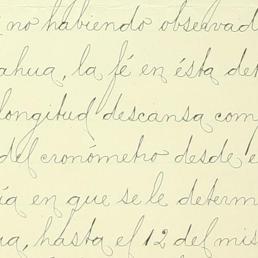 no habiendo observad
ahua, la fé en ésta det
longitud descansa com
del cronómetro desde e
ía en que se le determ
ua, hasta el 12 del mis